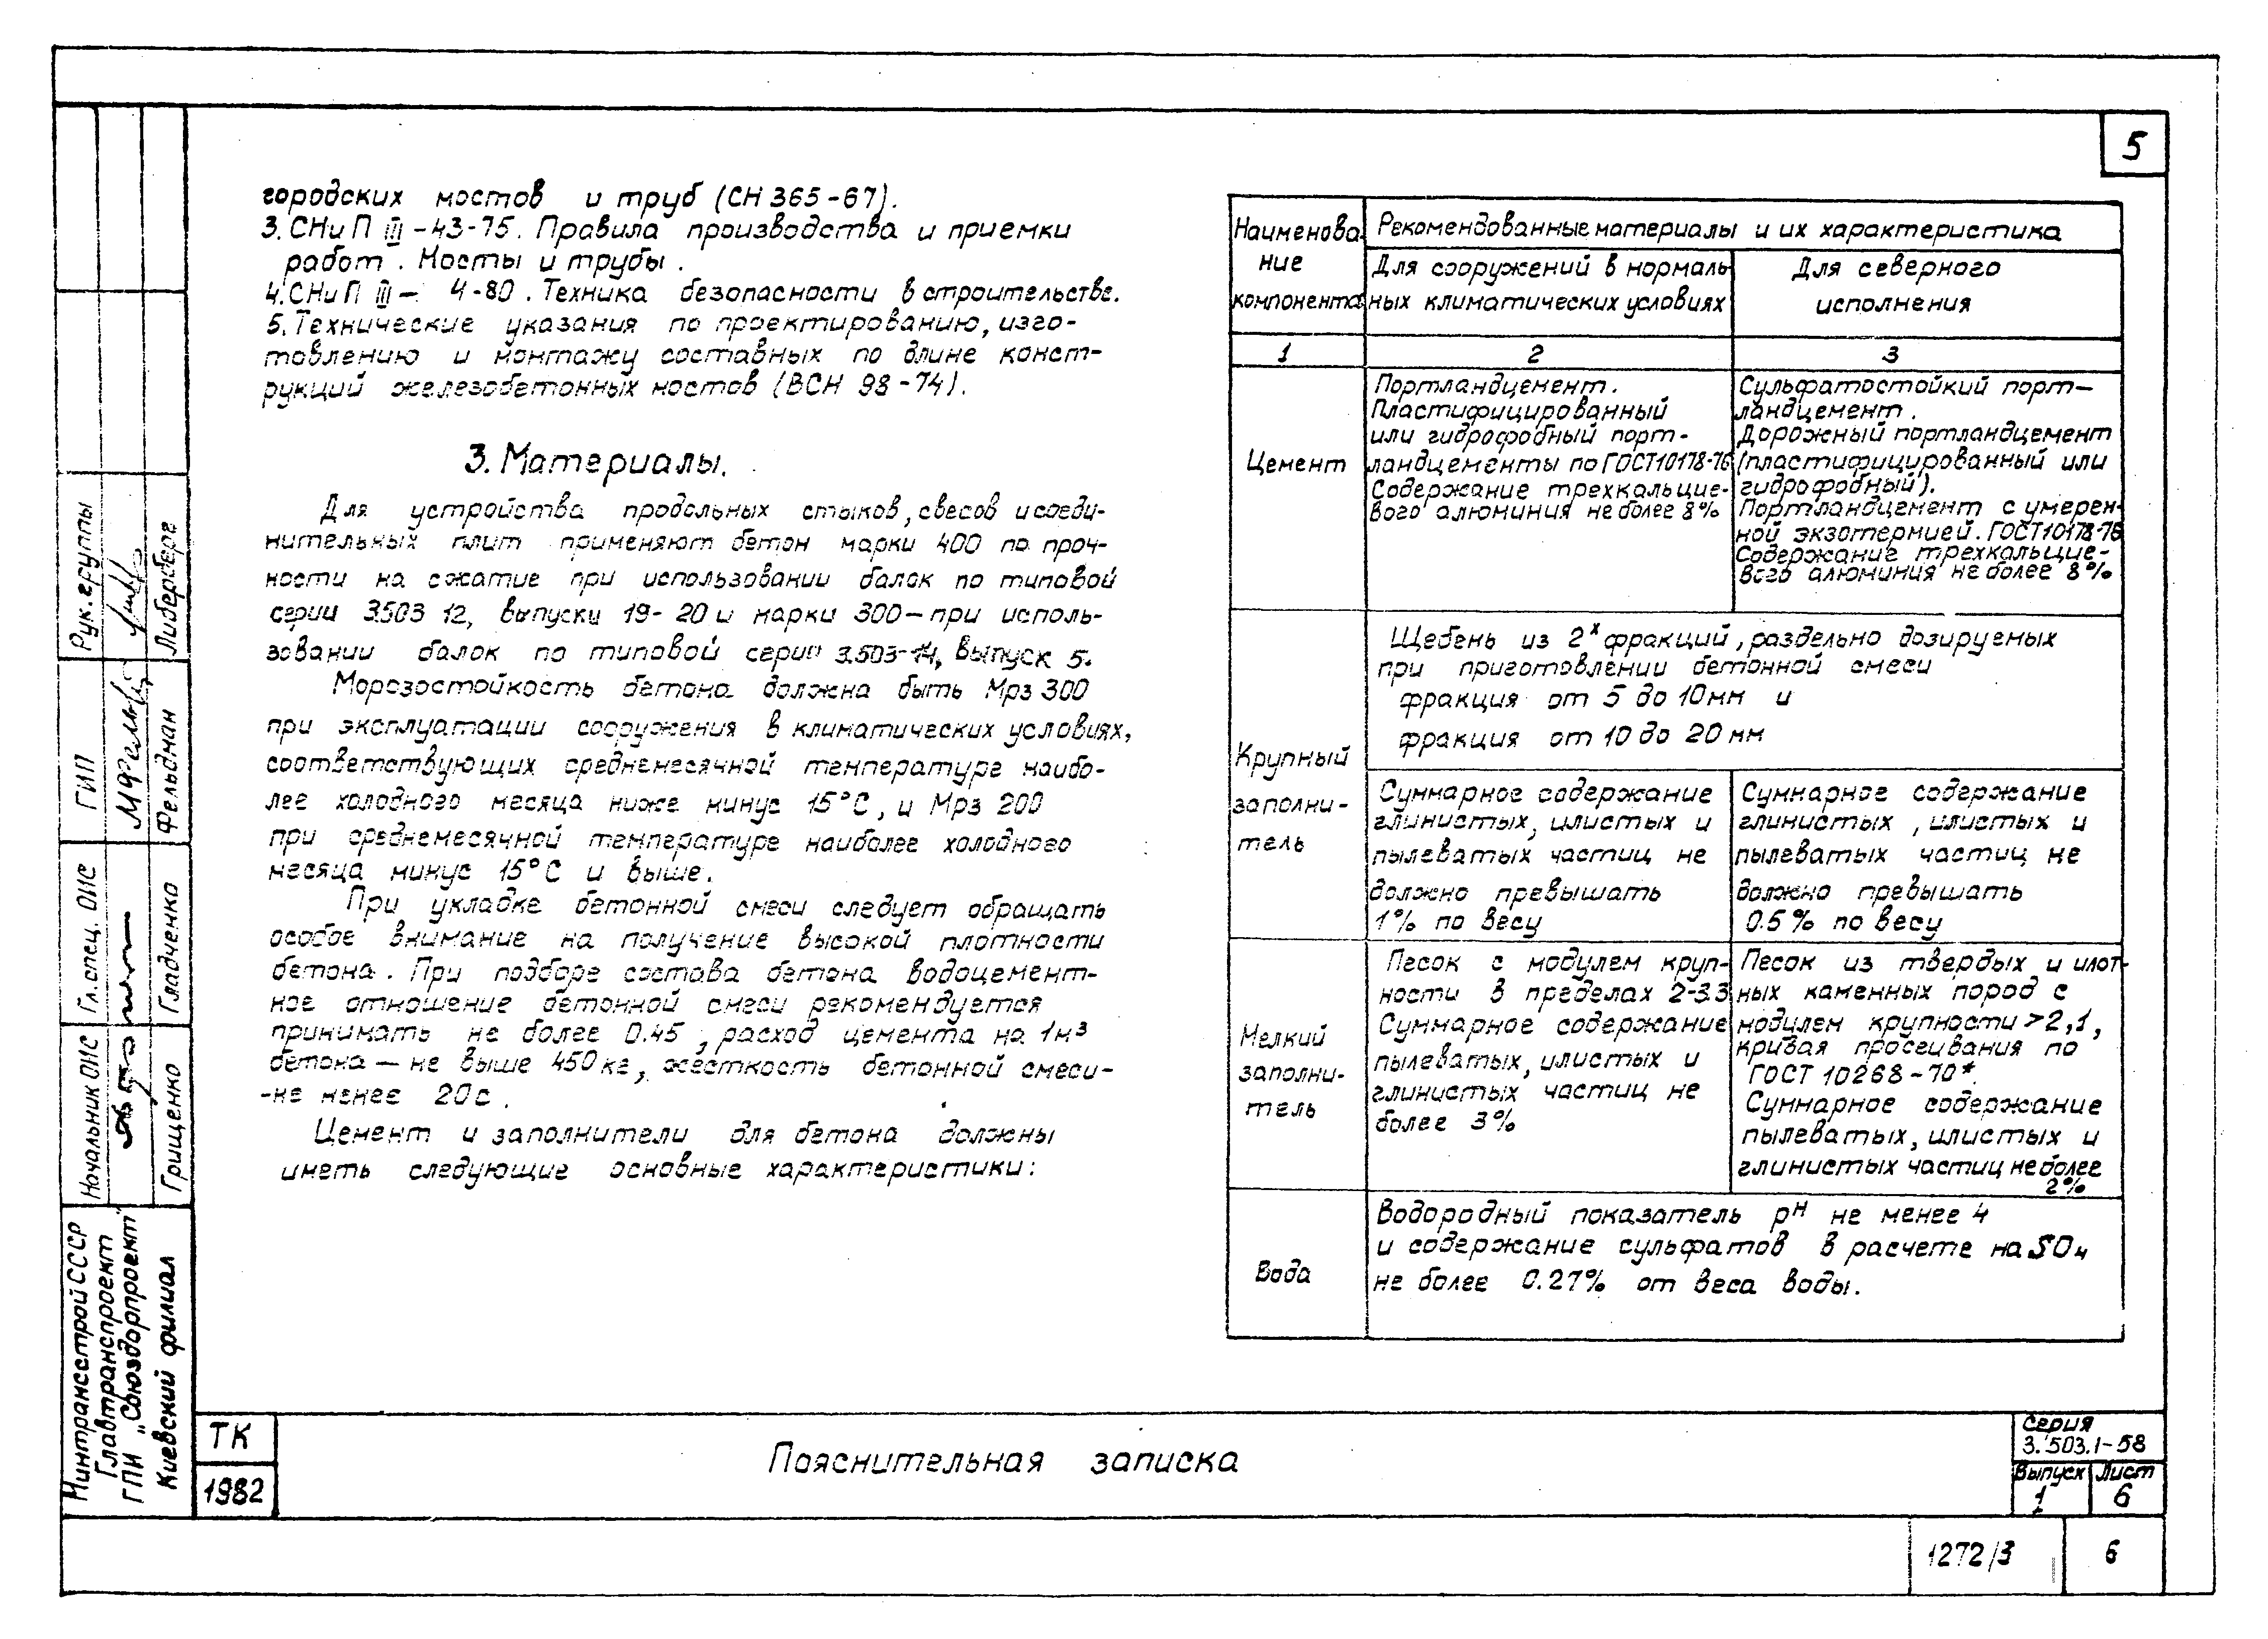 5
городских мостов и труб (СН 365-67).
3. СНиП III-43-75. Правила производства и приемки
работ. Мосты и трубы.
4. СНиП III- 4-80. Техника безопасности в строительстве.
5. Технические указания по проектированию, изго-
товлению и монтажу составных по длине конст-
рукций железобетонных мостов (ВСН 98-74).
3. Материалы.
Для устройства продольных стыков, свесов и соеди-
нительных плит применяют бетон марки 400 по проч-
ности на сжатие при использовании балок по типовой
серии 3.503 12, выпуски 19-20 и марки 300 — при исполь-
зовании балок по типовой серии 3.503-14, выпуск 5.
Морозостойкость бетона должна быть Мрз 300
при эксплуатации сооружения в климатических условиях,
соответствующих среднемесячной температуре наибо-
лее холодного месяца ниже минус 15°С, и Мрз 200
при среднемесячной температуре наиболее холодного
месяца минус 15°С и выше.
При укладке бетонной смеси следует обращать
особое внимание на получение высокой плотности
бетона. При подборе состава бетона водоцемент-
ное отношение бетонной смеси рекомендуется
принимать не более 0.45, расход цемента на 1м³
бетона — не выше 450 кг, жесткость бетонной смеси-
-не менее 20с.
Цемент и заполнители для бетона должны
иметь следующие основные характеристики:
Наименова-
ние
компонента
Рекомендованные материалы и их характеристика
Для сооружений в нормаль-
ных климатических условиях
Для северного
исполнения
1 2 3
Цемент
Портландцемент.
Пластифицированный
или гидрофобный порт-
ландцементы по ГОСТ10178-76
Содержание трехкальцие-
вого алюминия не более 8%
Сульфатостойкий порт-
ландцемент.
Дорожный портландцемент
(пластифицированный или
гидрофобный).
Портландцемент с умерен-
ной экзотермией. ГОСТ10178-76
Содержание трехкальцие-
вого алюминия не более 8%
Крупный
заполни-
тель
Щебень из 2х фракций, раздельно дозируемых
при приготовлении бетонной смеси
фракция от 5 до 10мм и
фракция от 10 до 20 мм
Суммарное содержание
глинистых, илистых и
пылеватых частиц не
должно превышать
1% по весу
Суммарное содержание
глинистых, илистых и
пылеватых частиц не
должно превышать
0.5% по весу
Мелкий
заполни-
тель
Песок с модулем круп-
ности в пределах 2-3.3
Суммарное содержание
пылеватых, илистых и
глинистых частиц не
более 3%
Песок из твердых и плот-
ных каменных пород с
модулем крупности >2,1,
кривая просеивания по
ГОСТ 10268-70*.
Суммарное содержание
пылеватых, илистых и
глинистых частиц не более
2%
Вода
Водородный показатель рН не менее 4
и содержание сульфатов в расчете на SO4
не более 0.27% от веса воды.
Рук. группы
Либерберг
ГИП
Фельдман
Гл. спец. ОИС
Гладченко
Начальник ОИС
Грищенко
Минтрансстрой СССР
Главтранспроект
ГПИ „Союздорпроект"
Киевский филиал
ТК
1982
Пояснительная записка
Серия
3.503.1-58
Выпуск
1
Лист
6
1272/3
6